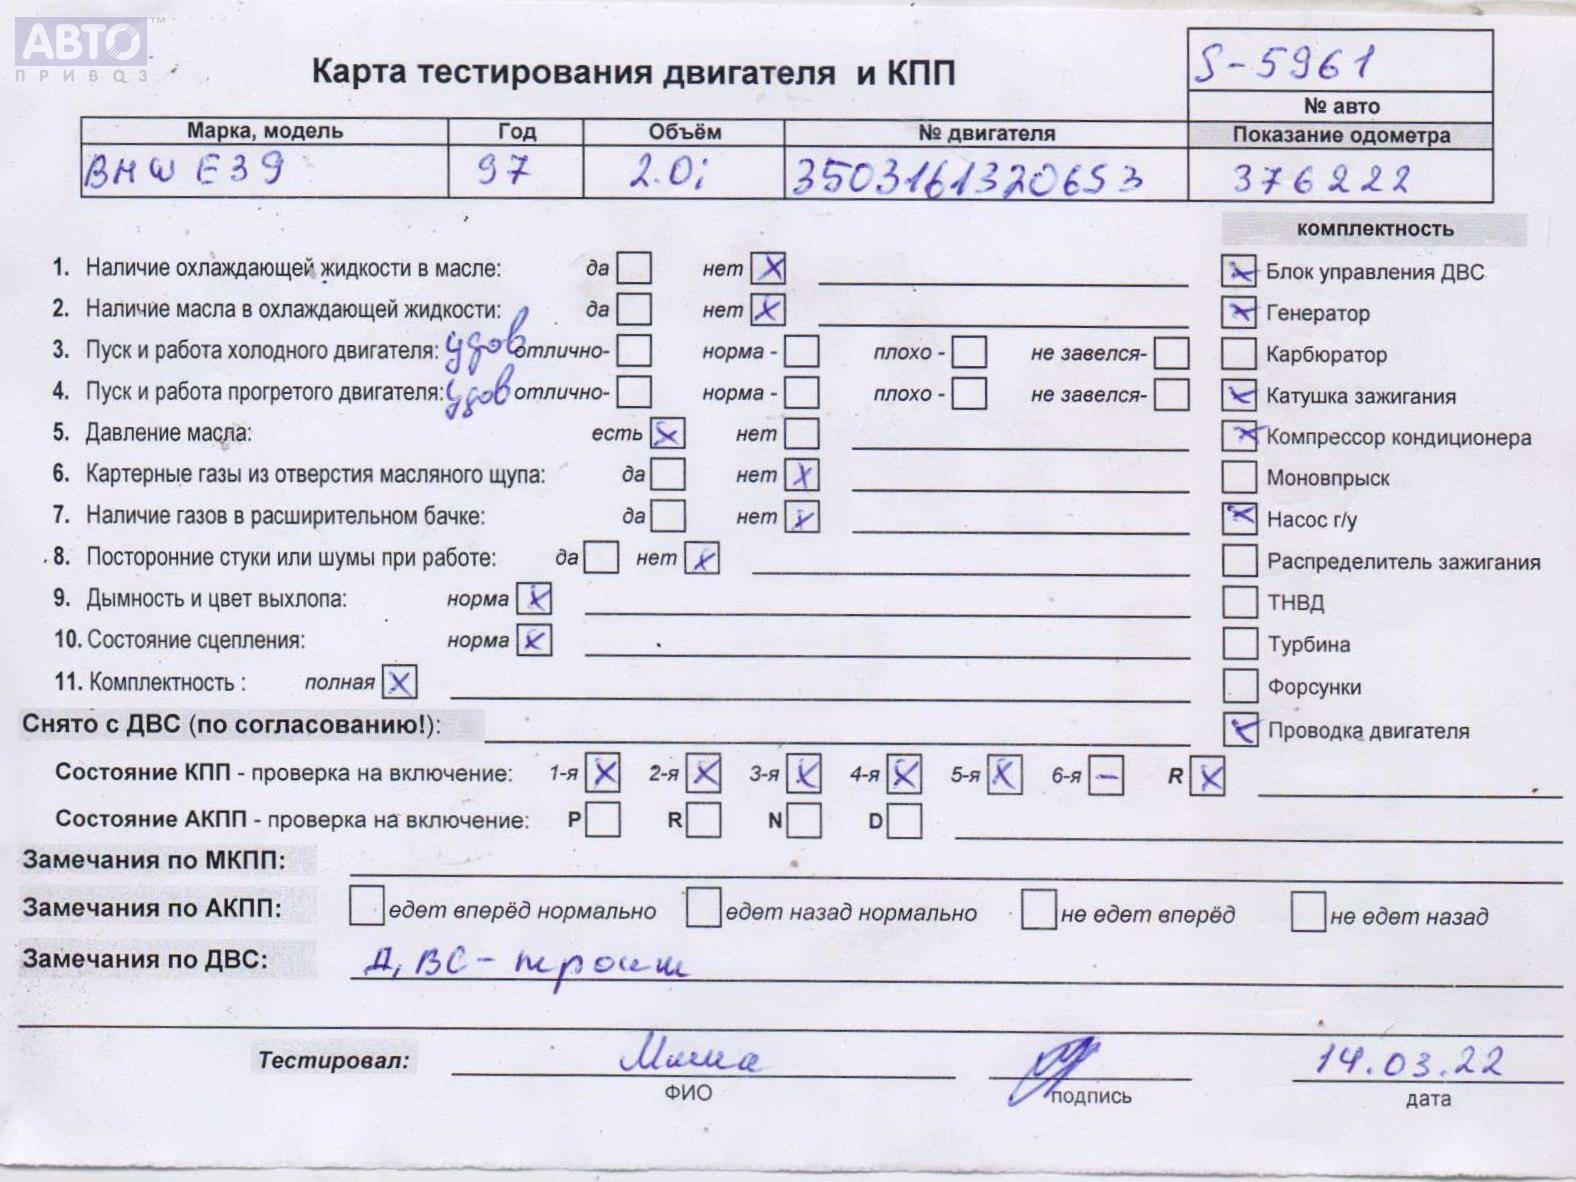 АВТО™
ПРИВОЗ
Карта тестирования двигателя и КПП
S-5961
№ авто
Марка, модель Год Объём № двигателя Показание одометра
BMW E39 97 2.0i 35031613206S3 376222
комплектность
1. Наличие охлаждающей жидкости в масле: да нет X
Блок управления ДВС X
2. Наличие масла в охлаждающей жидкости: да нет X
Генератор X
3. Пуск и работа холодного двигателя: удов отлично- норма - плохо - не завелся-
Карбюратор
4. Пуск и работа прогретого двигателя: удов отлично- норма - плохо - не завелся-
Катушка зажигания X
5. Давление масла: есть X нет
Компрессор кондиционера X
6. Картерные газы из отверстия масляного щупа: да нет X
Моновпрыск
7. Наличие газов в расширительном бачке: да нет X
Насос г/у X
8. Посторонние стуки или шумы при работе: да нет X
Распределитель зажигания
9. Дымность и цвет выхлопа: норма X
ТНВД
10. Состояние сцепления: норма X
Турбина
11. Комплектность : полная X
Форсунки
Снято с ДВС (по согласованию!):
Проводка двигателя X
Состояние КПП - проверка на включение: 1-я X 2-я X 3-я X 4-я X 5-я X 6-я – R X
Состояние АКПП - проверка на включение: P R N D
Замечания по МКПП:
Замечания по АКПП: едет вперёд нормально едет назад нормально не едет вперёд не едет назад
Замечания по ДВС: ДВС - троит
Тестировал: Миша 14.03.22
ФИО подпись дата